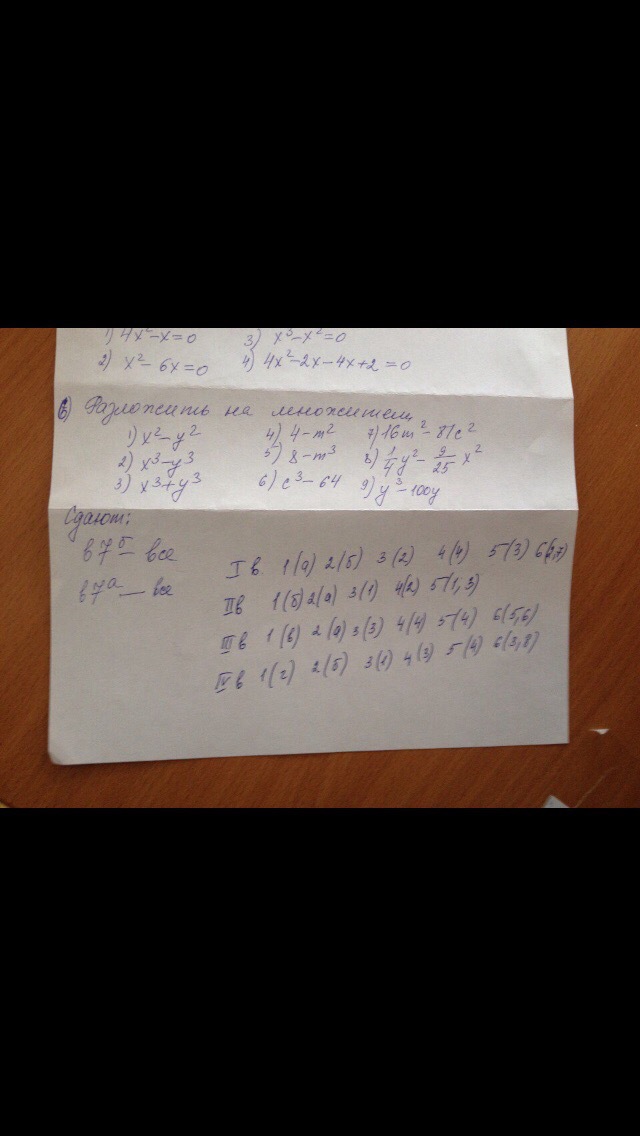 1) 4x²-x=0 3) x³-x²=0
2) x²-6x=0 4) 4x²-2x-4x+2=0
6) Разложить на множители
1) x²-y² 4) 4-m² 7) 16m²-81c²
2) x³-y³ 5) 8-m³ 8) 1/4 y² - 9/25 x²
3) x³+y³ 6) c³-64 9) y³-100y
Сдают:
в 7б - все
в 7а — все
I в 1(а) 2(б) 3(2) 4(4) 5(3)
II в 1(б) 2(а) 3(1) 4(2) 5(1,3)
III в 1(в) 2(а) 3(3) 4(4) 5(4) 6(5,6)
IV в 1(г) 2(б) 3(1) 4(3) 5(4) 6(3,8)